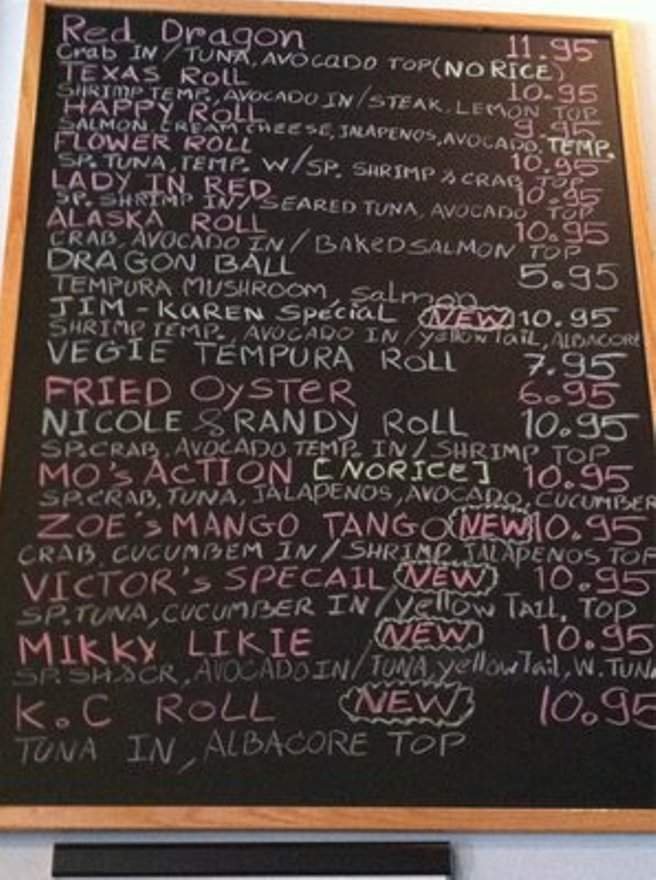 Red Dragon 11.95
Crab IN / TUNA, AVOCADO TOP (NO RICE)
TEXAS ROLL 10.95
SHRIMP TEMP., AVOCADO IN / STEAK, LEMON TOP
HAPPY ROLL 9.95
SALMON, CREAM CHEESE, JALAPENOS, AVOCADO, TEMP.
FLOWER ROLL 10.95
SP. TUNA, TEMP. W/ SP. SHRIMP & CRAB TOP
LADY IN RED 10.95
SP. SHRIMP IN / SEARED TUNA, AVOCADO TOP
ALASKA ROLL 10.95
CRAB, AVOCADO IN / BAKED SALMON TOP
DRAGON BALL 5.95
TEMPURA MUSHROOM, Salmon
JIM - KAREN Special NEW 10.95
SHRIMP TEMP., AVOCADO IN / yellow Tail, ALBACORE
VEGIE TEMPURA ROLL 7.95
FRIED OYSTER 6.95
NICOLE & RANDY ROLL 10.95
SP. CRAB, AVOCADO TEMP. IN / SHRIMP TOP
MO's ACTION [NO RICE] 10.95
SP. CRAB, TUNA, JALAPENOS, AVOCADO, CUCUMBER
ZOE's MANGO TANGO NEW 10.95
CRAB, CUCUMBEM IN / SHRIMP, JALAPENOS TOP
VICTOR's SPECAIL NEW 10.95
SP. TUNA, CUCUMBER IN / yellow TAIL, TOP
MIKKY LIKIE NEW 10.95
SP. SH & CR, AVOCADO IN / TUNA, yellow Tail, W. TUNA
K.C ROLL NEW 10.95
TUNA IN, ALBACORE TOP